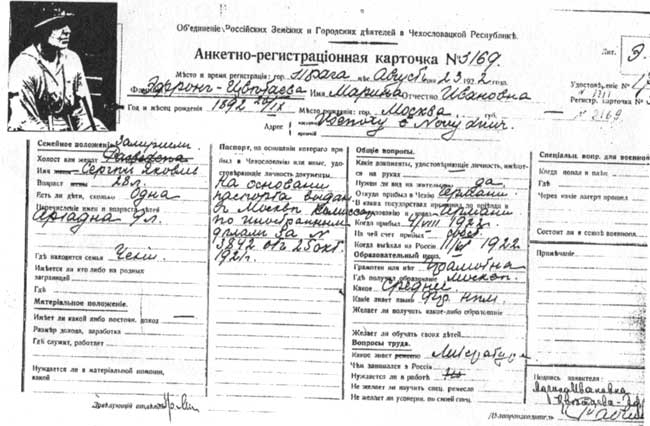 Объединеніе Россійскихъ Земскихъ и Городскихъ дѣятелей въ Чехословацкой Республикѣ.
Анкетно-регистраціонная карточка №
Лит. Э.
Мѣсто и время регистраціи: гор. Прага мѣс. Августъ 23 1922 года.
Удостовѣреніе №
Эфронъ-Цвѣтаева Имя Марина Отчество Ивановна
Регистр. карточка №
№ 2169
Годъ и мѣсяцъ рожденія 1892 IX Мѣсто рожденія: гор. Москва губ.
Адресъ
Семейное положеніе. Замужняя.
Холостъ или женатъ
Имя Сергѣй
Возрастъ 28 л.
Есть ли дѣти, сколько Одна
Перечисленіе именъ и возраста дѣтей
Аріадна 9 л.
Гдѣ находится семья Чехія
Имѣется ли кто либо изъ родныхъ
заграницей
Гдѣ
Матеріальное положеніе.
Имѣетъ ли какой либо постоян. доход
Размѣръ дохода, заработка
Гдѣ служитъ, работаетъ
Нуждается ли въ матеріальной помощи,
какой
Паспортъ, на основаніи котораго при-
былъ въ Чехословакію или иные, удо-
стовѣряющіе личность документы.
На основаніи
паспорта выдан.
по иностраннымъ
дѣламъ за №
3892 отъ 25 окт.
1921 г.
Общіе вопросы.
Какіе документы, удостовѣряющіе личность, имѣют-
ся на рукахъ
Нуженъ ли видъ на жительство да
Откуда прибылъ въ Чехію Германія
Когда прибылъ 1/VIII 1922 г.
На чей счетъ прибылъ
Когда выѣхалъ изъ Россіи 11/V 1922
Образовательный ценз.
Грамотенъ или нѣтъ грамотна
Гдѣ получилъ образованіе Москв.
Какое Среднее
Какіе знаетъ языки фр. нѣм.
Желаетъ ли получить какое-либо образованіе
Желаетъ ли обучать своихъ дѣтей.
Вопросы труда.
Какое знаетъ ремесло Литература
Чѣмъ занимался въ Россіи
Нуждается ли въ работѣ
Не желаетъ ли изучить спец. ремесло
Не желаетъ ли усоверш. по своей спец.
Спеціальн. вопр. для военной
Когда попалъ въ плѣнъ
Гдѣ
Черезъ какіе лагеря прошелъ
Состоитъ ли въ союзѣ военнопл.
Примѣчаніе.
Подпись заявителя:
Марина Ивановна
Цвѣтаева-Эф
Дѣлопроизводитель